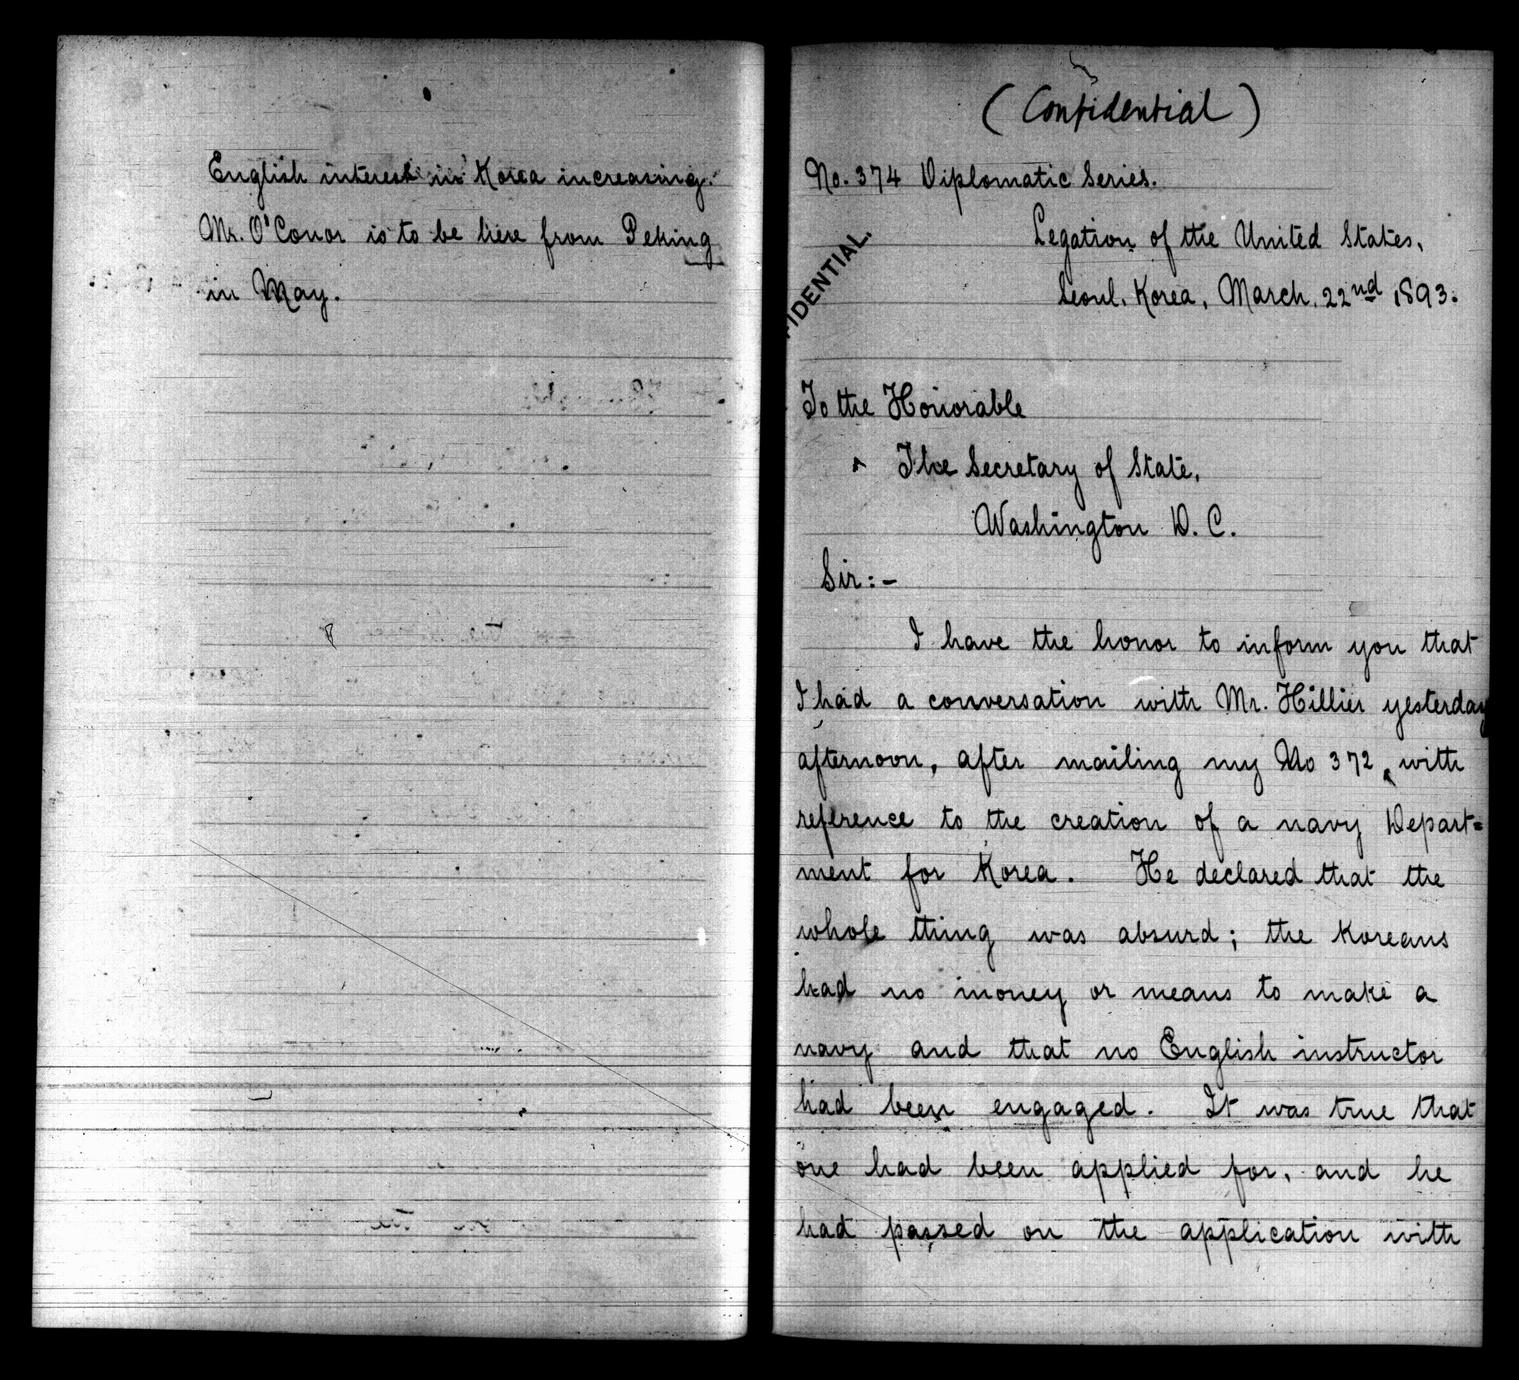 English interest in Korea increasing.
Mr. O'Conor is to be here from Peking
in May.
(Confidential)
No. 374 Diplomatic Series.
Legation of the United States,
Seoul, Korea, March. 22nd 1893.
FIDENTIAL.
To the Honorable
The Secretary of State,
Washington D. C.
Sir:-
I have the honor to inform you that
I had a conversation with Mr. Hillier yesterday
afternoon, after mailing my No 372, with
reference to the creation of a navy Depart=
ment for Korea. He declared that the
whole thing was absurd; the Koreans
had no money or means to make a
navy and that no English instructor
had been engaged. It was true that
one had been applied for, and he
had passed on the application with